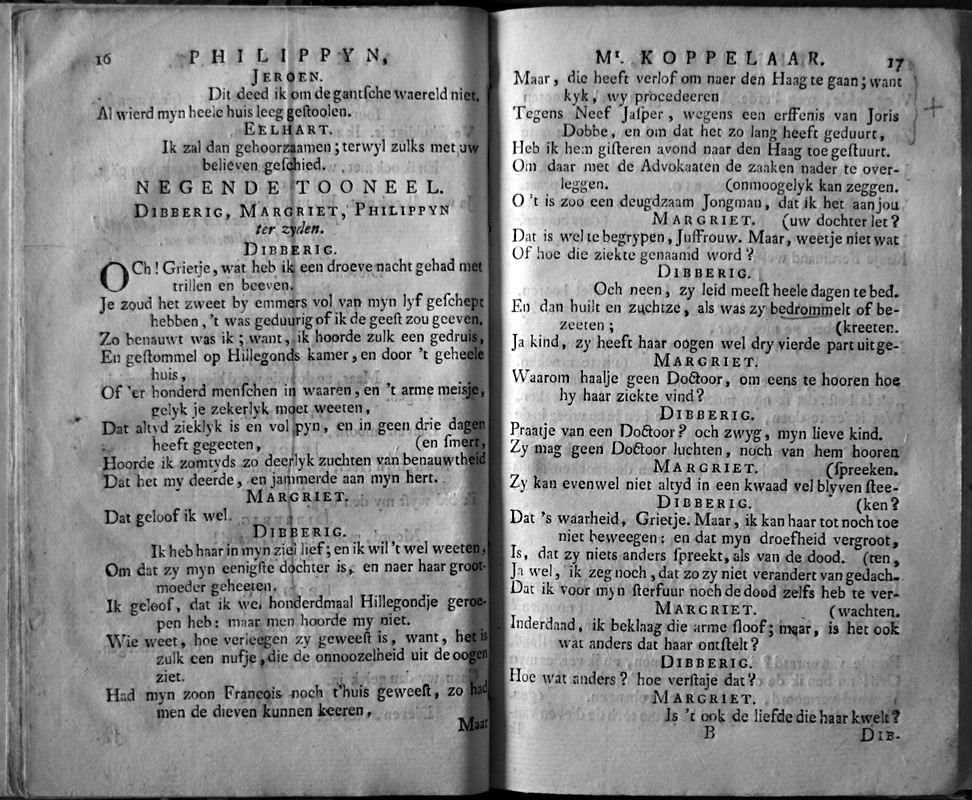 16 PHILIPPYN,
JEROEN.
Dit deed ik om de gantſche waereld niet,
Al wierd myn heele huis leeg geſtoolen.
EELHART.
Ik zal dan gehoorzaamen; terwyl zulks met uw
believen geſchied.
NEGENDE TOONEEL.
DIBBERIG, MARGRIET, PHILIPPYN
ter zyden.
DIBBERIG.
OCh! Grietje, wat heb ik een droeve nacht gehad met
trillen en beeven.
Je zoud het zweet by emmers vol van myn lyf geſchept
hebben, 't was geduurig of ik de geeſt zou geeven.
Zo benauwt was ik; want, ik hoorde zulk een gedruis,
En geſtommel op Hillegonds kamer, en door 't geheele
huis,
Of 'er honderd menſchen in waaren, en 't arme meisje,
gelyk je zekerlyk moet weeten,
Dat altyd zieklyk is en vol pyn, en in geen drie dagen
heeft gegeeten, (en ſmert,
Hoorde ik zomtyds zo deerlyk zuchten van benauwtheid
Dat het my deerde, en jammerde aan myn hert.
MARGRIET.
Dat geloof ik wel.
DIBBERIG.
Ik heb haar in myn ziel lief; en ik wil 't wel weeten,
Om dat zy myn eenigſte dochter is, en naer haar groot-
moeder geheeten.
Ik geloof, dat ik wel honderdmaal Hillegondje geroe-
pen heb: maar men hoorde my niet.
Wie weet, hoe verleegen zy geweeſt is, want, het is
zulk een nufje, die de onnoozelheid uit de oogen
ziet.
Had myn zoon Francois noch t'huis geweeſt, zo had
men de dieven kunnen keeren,
Maar
Mr. KOPPELAAR. 17
Maar, die heeft verlof om naer den Haag te gaan; want
kyk, wy procedeeren
Tegens Neef Jaſper, wegens een erffenis van Joris
Dobbe, en om dat het zo lang heeft geduurt,
Heb ik hem giſteren avond naar den Haag toe geſtuurt.
Om daar met de Advokaaten de zaaken nader te over-
leggen. (onmoogelyk kan zeggen.
O 't is zoo een deugdzaam Jongman, dat ik het aan jou
MARGRIET. (uw dochter let?
Dat is wel te begrypen, Juffrouw. Maar, weetje niet wat
Of hoe die ziekte genaamd word?
DIBBERIG.
Och neen, zy leid meeſt heele dagen te bed.
En dan huilt en zuchtze, als was zy bedrommelt of be-
zeeten; (kreeten.
Ja kind, zy heeft haar oogen wel dry vierde part uit ge-
MARGRIET.
Waarom haalje geen Doctoor, om eens te hooren hoe
hy haar ziekte vind?
DIBBERIG.
Praatje van een Doctoor? och zwyg, myn lieve kind.
Zy mag geen Doctoor luchten, noch van hem hooren
MARGRIET. (ſpreeken.
Zy kan evenwel niet altyd in een kwaad vel blyven ſtee-
DIBBERIG. (ken?
Dat 's waarheid, Grietje. Maar, ik kan haar tot noch toe
niet beweegen: en dat myn droefheid vergroot,
Is, dat zy niets anders ſpreekt, als van de dood. (ten,
Ja wel, ik zeg noch, dat zo zy niet verandert van gedach-
Dat ik voor myn ſterfuur noch de dood zelfs heb te ver-
MARGRIET. (wachten.
Inderdaad, ik beklaag die arme ſloof; maar, is het ook
wat anders dat haar ontſtelt?
DIBBERIG.
Hoe wat anders? hoe verſtaje dat?
MARGRIET.
Is 't ook de liefde die haar kwelt?
B DIB-